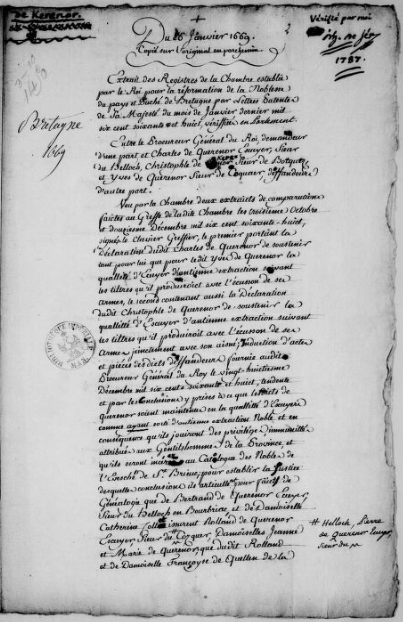 De Kerenor.
Vérifié par moi
1787.
Du 16 Janvier 1669.
2
Copié sur l'original en parchemin
Bretagne
1669
Extrait des Registres de la Chambre établie
par le Roi pour la réformation de la Noblesse
de pays et Duché de Bretagne par Lettres Patente
de Sa Majesté du mois de Janvier dernier mil
six cent soixante et huit, vérifiées en Parlement.
Entre le Procureur Général du Roi, demandeur
d'une part, et Charles de Querenor Ecuyer, Sieur
du Belloch, Christophe de Sieur de
et Yves de Querenor Sieur de Coquaer, deffendeurs
d'autre part.
Veu par la Chambre deux extraicts de comparution
faictes au Greffe de ladite Chambre les troisieme Octobre
et douziesme Décembre mil six cent soixante-huict,
signés le Clavier Greffier, le premier portant la
Déclaration dudit Charles de Querenor de soutenir
tant pour lui que pour ledit Yves de Querenor la
quallité d'Ecuyer d'antienne extraction suivant
les tiltres qu'il produiroit avec l'écusson de ses
armes, le second contenant aussi la Déclaration
dudit Christophe de Querenor de soustenir la
quallité d'Escuyer d'antienne extraction suivant
les tiltres qu'il produiroit avec l'écusson de ses
Armes, joinctement avec son aisné; induction d'actes
et pièces desdicts deffandeurs fournie audit
Procureur Général du Roy le vingt-huictiesme
Décembre mil six cent soixante et huict, tendante
et par les conclusions y prises à ce que lesdicts de
querenor soient maintenus en la quallité d'Ecuyers
comme ayant sorti d'antienne extraction Noble, et en
conséquence qu'ils jouiront des privilège immunité
attribué aux Gentilshommes de la Province, et
qu'ils seront au Catalogue des Noble de
l'Evesché de St. Brieuc; pour establir la Justice
desquelle conclusions articulle pour faict de
Généalogie que de Bertrand de Querenor Ecuyer,
Sieur du Belloch en Bourbriac, et de Damoiselle
Catherine issurent Rolland de Querenor
Escuyer, Sieur du Cozquer, Damoiselles Jeanne
et Marie de Querenor; que dudit Rolland
et de Damoiselle Françoyse de Quellen de la
# Belloch, Pierre
de Querenor Ecuyer,
Sieur du